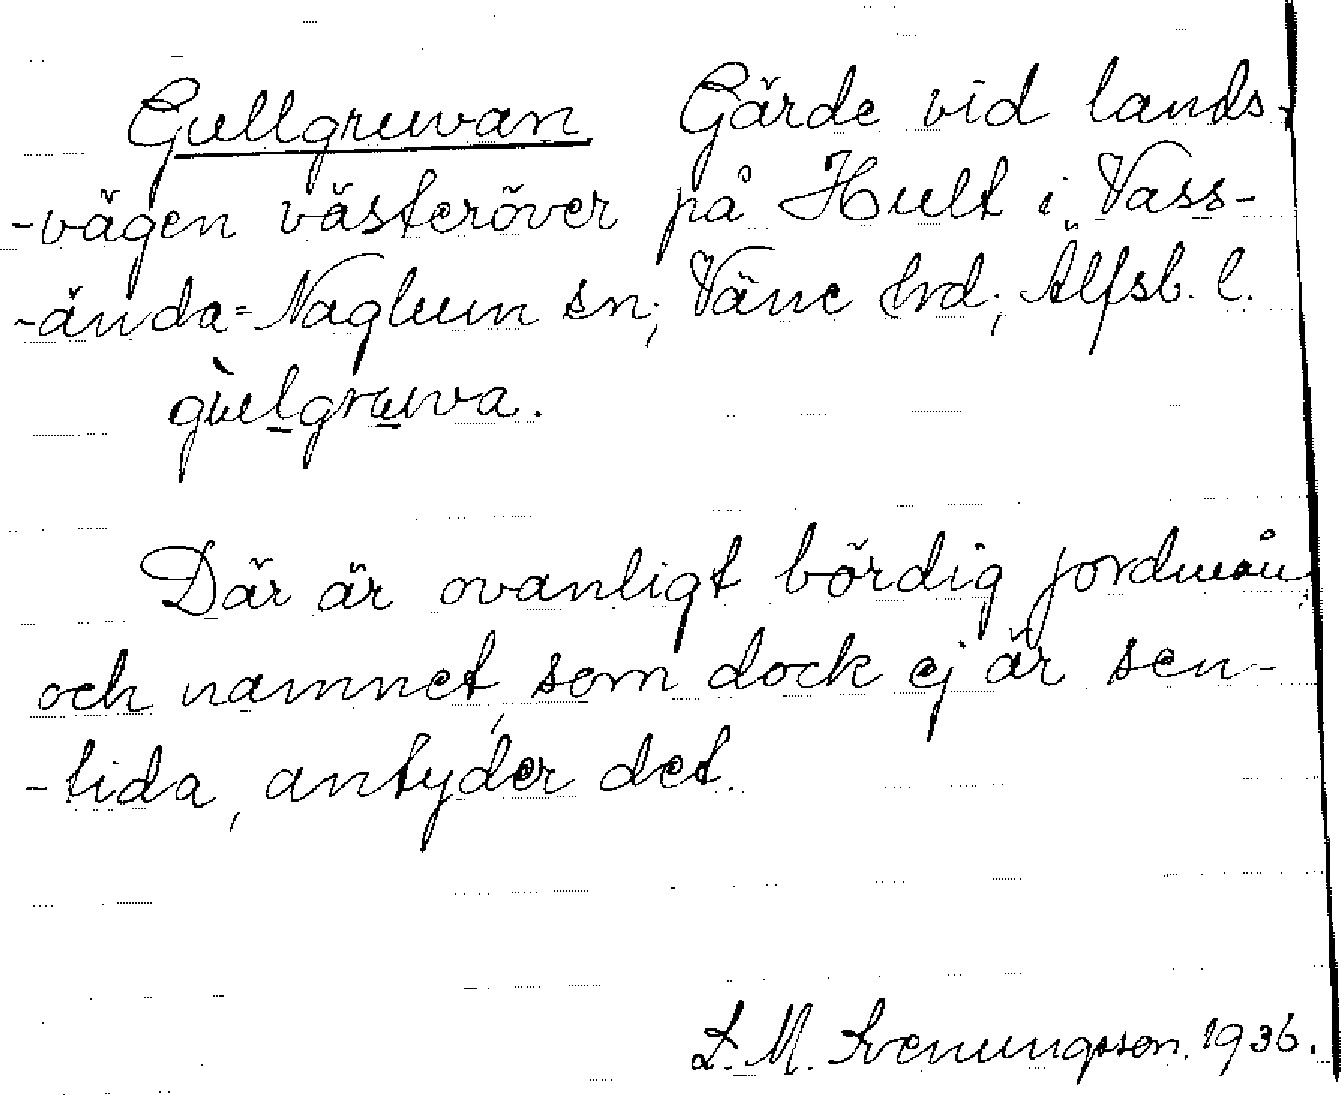 Gullgruvan Gärde vid lands-
-vägen västeröver på Hult i Vass-
-ända-Naglum sn; Väne hrd; Älfsb. l.
gùlgruva.
Där är ovanligt bördig jordmån,
och namnet, som dock ej är sen-
-tida, antyder det.
L. M. Svenungsson. 1936.